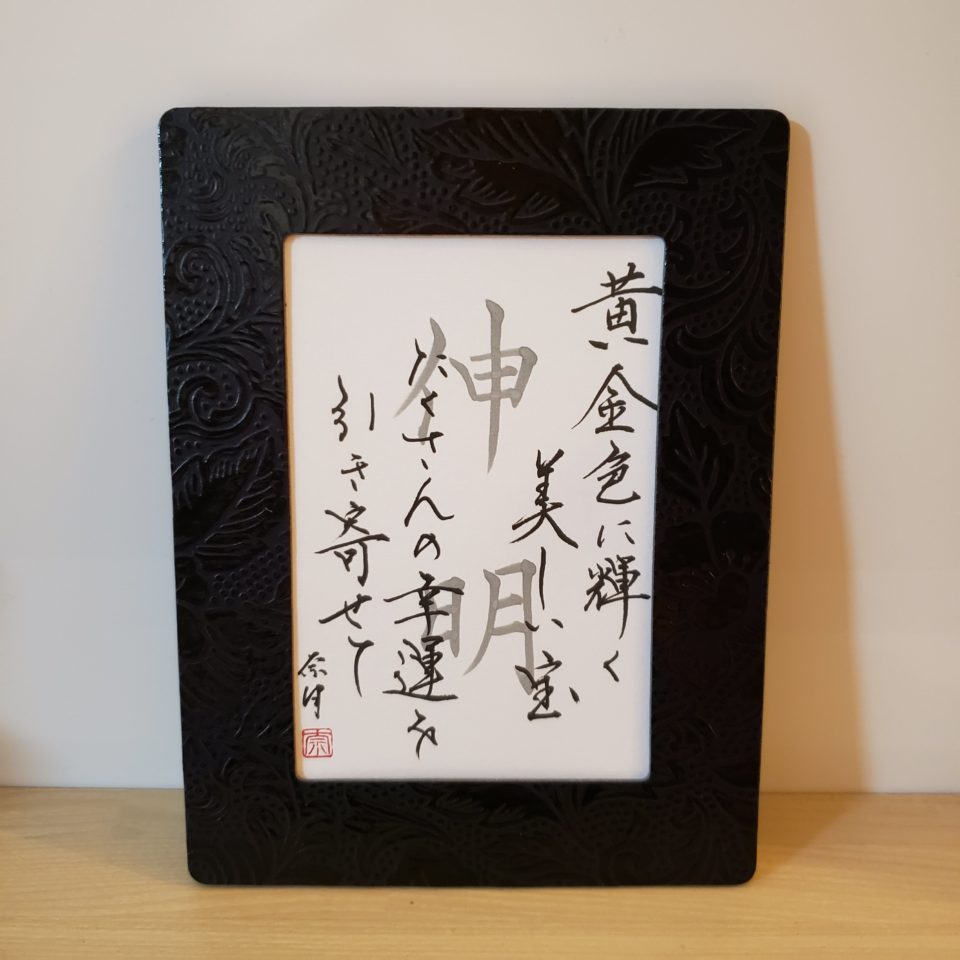 黄金色に輝く
美しい宝
たくさんの幸運を
引き寄せて
伸明
奈月
奈